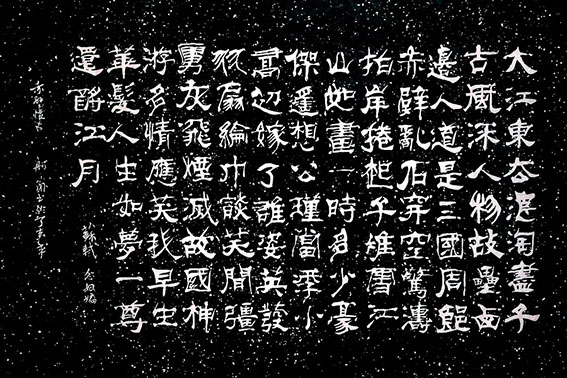 大江東去浪淘盡千
古風流人物故壘西
邊人道是三國周郎
赤壁亂石穿空驚濤
拍岸捲起千堆雪江
山如畫一時多少豪
傑遙想公瑾當秊小
喬初嫁了雄姿英發
羽扇綸巾談笑間彊
虜灰飛煙滅故國神
游多情應笑我早生
華髮人生如夢一尊
還酹江月
蘇軾念奴嬌
赤壁懷古